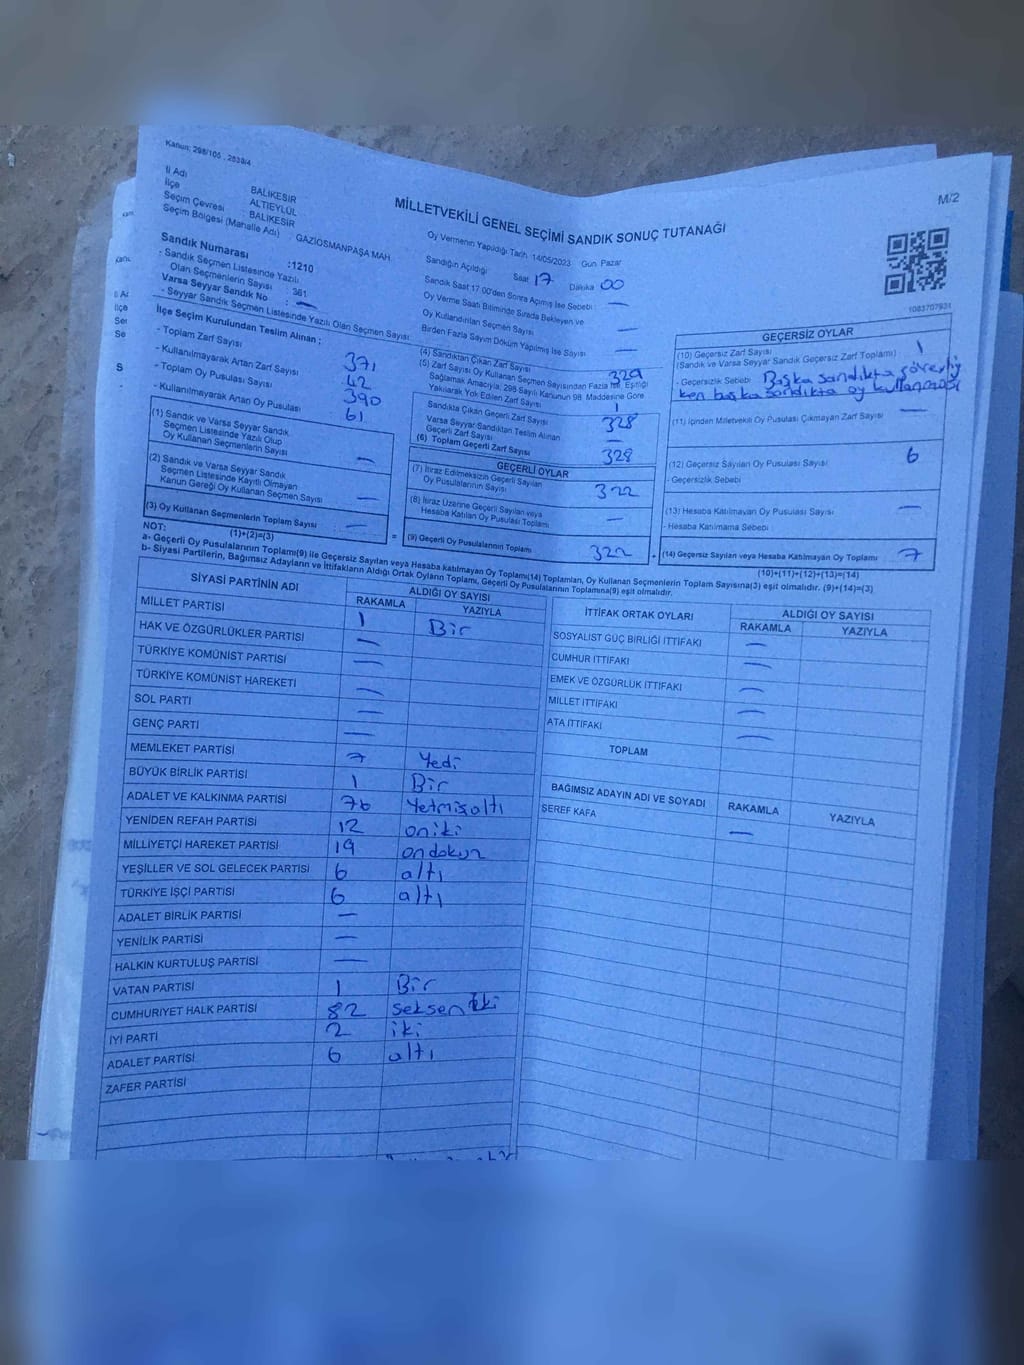 Kanun: 298/105 , 2839/4
M/2
İl Adı BALIKESİR
İlçe ALTIEYLÜL
Seçim Çevresi : BALIKESİR
Seçim Bölgesi (Mahalle Adı) : GAZİOSMANPAŞA MAH.
MİLLETVEKİLİ GENEL SEÇİMİ SANDIK SONUÇ TUTANAĞI
Sandık Numarası :1210
- Sandık Seçmen Listesinde Yazılı
Olan Seçmenlerin Sayısı : 361
Varsa Seyyar Sandık No : —
- Seyyar Sandık Seçmen Listesinde Yazılı Olan Seçmen Sayısı:
Oy Vermenin Yapıldığı Tarih 14/05/2023 Gün Pazar
Sandığın Açıldığı Saat 17 Dakika 00
Sandık Saat 17.00'den Sonra Açılmış İse Sebebi : —
Oy Verme Saati Bitiminde Sırada Bekleyen ve
Oy Kullandırılan Seçmen Sayısı —
Birden Fazla Sayım Döküm Yapılmış İse Sayısı —
1083707931
İlçe Seçim Kurulundan Teslim Alınan ;
- Toplam Zarf Sayısı 371
- Kullanılmayarak Artan Zarf Sayısı 42
- Toplam Oy Pusulası Sayısı 390
- Kullanılmayarak Artan Oy Pusulası 61
(1) Sandık ve Varsa Seyyar Sandık
Seçmen Listesinde Yazılı Olup
Oy Kullanan Seçmenlerin Sayısı —
(2) Sandık ve Varsa Seyyar Sandık
Seçmen Listesinde Kayıtlı Olmayan
Kanun Gereği Oy Kullanan Seçmen Sayısı —
(3) Oy Kullanan Seçmenlerin Toplam Sayısı —
(1)+(2)=(3)
(4) Sandıktan Çıkan Zarf Sayısı 329
(5) Zarf Sayısı Oy Kullanan Seçmen Sayısından Fazla İse, Eşitliği
Sağlamak Amacıyla, 298 Sayılı Kanunun 98. Maddesine Göre
Yakılarak Yok Edilen Zarf Sayısı 1
Sandıkta Çıkan Geçerli Zarf Sayısı 328
Varsa Seyyar Sandıktan Teslim Alınan
Geçerli Zarf Sayısı —
(6) Toplam Geçerli Zarf Sayısı 328
GEÇERLİ OYLAR
(7) İtiraz Edilmeksizin Geçerli Sayılan
Oy Pusulalarının Sayısı 322
(8) İtiraz Üzerine Geçerli Sayılan veya
Hesaba Katılan Oy Pusulası Toplamı —
= (9) Geçerli Oy Pusulalarının Toplamı 322
GEÇERSİZ OYLAR
(10) Geçersiz Zarf Sayısı 1
(Sandık ve Varsa Seyyar Sandık Geçersiz Zarf Toplamı)
- Geçersizlik Sebebi : Başka sandıkta görevliy
ken başka sandıkta oy kullanması
(11) İçinden Milletvekili Oy Pusulası Çıkmayan Zarf Sayısı —
(12) Geçersiz Sayılan Oy Pusulası Sayısı 6
- Geçersizlik Sebebi
(13) Hesaba Katılmayan Oy Pusulası Sayısı —
- Hesaba Katılmama Sebebi
+ (14) Geçersiz Sayılan veya Hesaba Katılmayan Oy Toplamı 7
(10)+(11)+(12)+(13)=(14)
NOT:
a- Geçerli Oy Pusulalarının Toplamı(9) ile Geçersiz Sayılan veya Hesaba Katılmayan Oy Toplamı(14) Toplamları, Oy Kullanan Seçmenlerin Toplam Sayısına(3) eşit olmalıdır. (9)+(14)=(3)
b- Siyasi Partilerin, Bağımsız Adayların ve İttifakların Aldığı Ortak Oyların Toplamı, Geçerli Oy Pusulalarının Toplamına(9) eşit olmalıdır.
SİYASİ PARTİNİN ADI ALDIĞI OY SAYISI
RAKAMLA YAZIYLA
MİLLET PARTİSİ 1 Bir
HAK VE ÖZGÜRLÜKLER PARTİSİ —
TÜRKİYE KOMÜNİST PARTİSİ —
TÜRKİYE KOMÜNİST HAREKETİ —
SOL PARTİ —
GENÇ PARTİ —
MEMLEKET PARTİSİ 7 Yedi
BÜYÜK BİRLİK PARTİSİ 1 Bir
ADALET VE KALKINMA PARTİSİ 76 Yetmişaltı
YENİDEN REFAH PARTİSİ 12 oniki
MİLLİYETÇİ HAREKET PARTİSİ 19 ondokuz
YEŞİLLER VE SOL GELECEK PARTİSİ 6 altı
TÜRKİYE İŞÇİ PARTİSİ 6 altı
ADALET BİRLİK PARTİSİ —
YENİLİK PARTİSİ —
HALKIN KURTULUŞ PARTİSİ —
VATAN PARTİSİ 1 Bir
CUMHURİYET HALK PARTİSİ 82 seksen iki
İYİ PARTİ 2 iki
ADALET PARTİSİ 6 altı
ZAFER PARTİSİ
İTTİFAK ORTAK OYLARI ALDIĞI OY SAYISI
RAKAMLA YAZIYLA
SOSYALİST GÜÇ BİRLİĞİ İTTİFAKI —
CUMHUR İTTİFAKI —
EMEK VE ÖZGÜRLÜK İTTİFAKI —
MİLLET İTTİFAKI —
ATA İTTİFAKI —
TOPLAM
BAĞIMSIZ ADAYIN ADI VE SOYADI RAKAMLA YAZIYLA
ŞEREF KAFA —